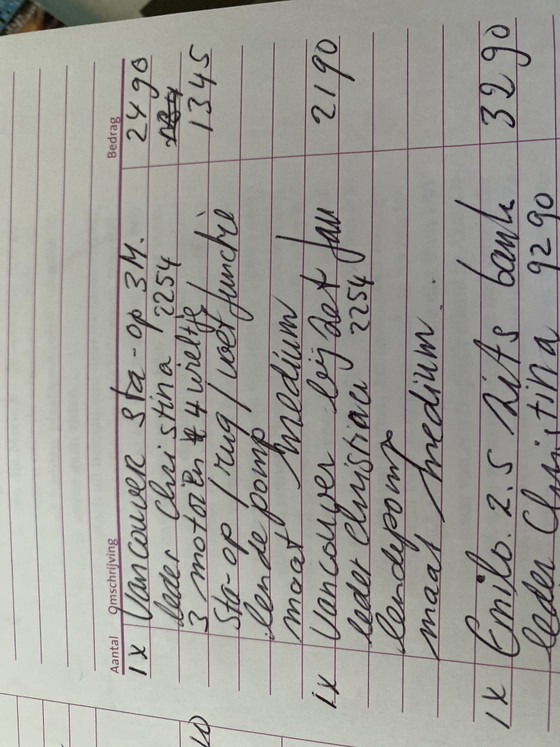 Aantal Omschrijving Bedrag
1x Vancouver sta-op 3M. 2490
leder Christina 2254
3 motoren 4 wieltje 1345
Sta-op / rug / voet functie
lende pomp
maat medium
1x Vancouver bij zet fau 2190
leder Christiaa 2254
lendepomp
maat medium.
1x Emilo. 2.5 zits bank 3290
leder Christina 9290
10